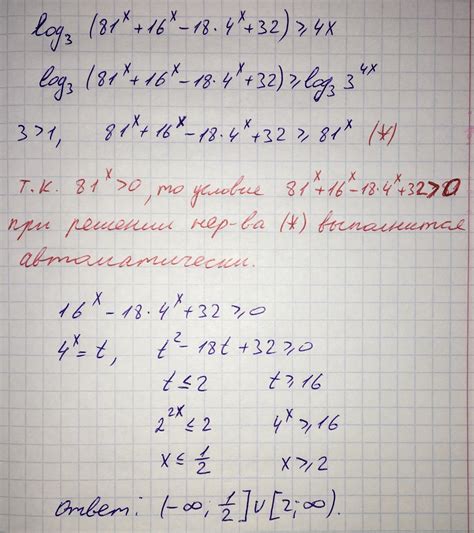 log₃ (81ˣ + 16ˣ − 18·4ˣ + 32) ⩾ 4x
log₃ (81ˣ + 16ˣ − 18·4ˣ + 32) ⩾ log₃ 3⁴ˣ
3 > 1, 81ˣ + 16ˣ − 18·4ˣ + 32 ⩾ 81ˣ (*)
т.к. 81ˣ > 0, то условие 81ˣ + 16ˣ − 18·4ˣ + 32 > 0
при решении нер-ва (*) выполнится
автоматически.
16ˣ − 18·4ˣ + 32 ⩾ 0
4ˣ = t, t² − 18t + 32 ⩾ 0
t ⩽ 2 t ⩾ 16
2²ˣ ⩽ 2 4ˣ ⩾ 16
x ⩽ 1/2 x ⩾ 2
Ответ: (−∞; 1/2] ∪ [2; ∞).